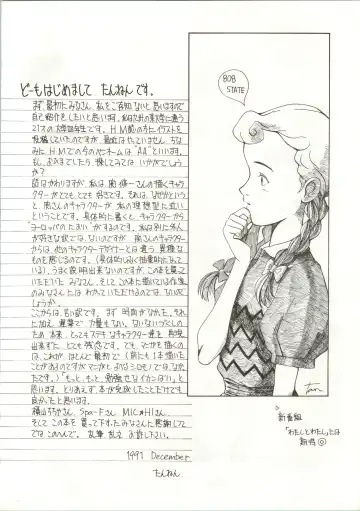 どーもはじめまして たんねん です。
まず最初にみなさん私をご存知ないと思いますので
自己紹介をしたいと思います。私は
21才の大学四年生です。H.M誌の方にイラストを
投稿していたのですが、最近はやっていません。ちな
みにH.Mでの今のペンネームは"AA"といいます。
もしおひまでしたら捜してみてはいかがでしょう
か?
話はかわりますが、私は奥 伸一さんの描くキャラ
クターがとても、とても好きです。それは、なぜかという
と、奥さんのキャラクターが私の理想に近い
ということです。具体的に書くと、キャラクターから
ヨーロッパの"たまい"がするのです。私は別に外人
が好きな訳では、ないのですが 奥さんのキャラクター
からは、他のキャラクターデザイナーとは違う異種な
ものを感じるのです。(具体的じゃなく抽象的になって
いる)うまく説明出来ないのですが、この本を買って
いただいたみなさん、そしてこの本に描いている作家
のみなさんにはわかっていただけるのでは、ないで
しょうか。
ここからは、言い訳です。まず時間がなかった。それ
に加え、遅筆で力量もない。ないないづくしの
ため本来、とってもステキなキャラクター達を表現
出来ずに、とても残念です。でも、マンガを描くの
は、これが、ほとんど最初で(前にも1本描いたこ
とがあるのですがマンガとよべるシロモノでは、なかっ
たです。)"もっと、もっと勉強せなイカンばい"と
思います。とりあえず、本が完成したことだけです
良かったと思います。
横山ちかやさん、Spa-Fさん、MIC★HIさん、
そしてこの本を買って下さったみなさんに感謝してで
はこのへんで。乱筆、乱文お許し下さい。
1991 December
たんねん
808
STATE
新番組
「わたしとわたし」とは